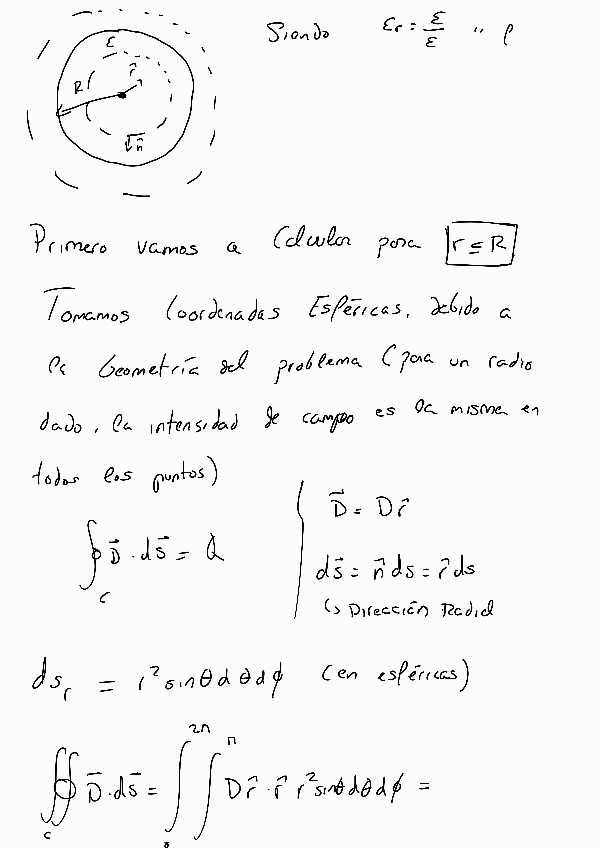 Siendo εr = ε/ε " ρ
ε
R
r̂
n̂
Primero vamos a Calcular para r ≤ R
Tomamos Coordenadas Esféricas, debido a
la Geometría del problema (para un radio
dado, la intensidad de campo es la misma en
todos los puntos)
∮_C D⃗ · ds⃗ = Q
D⃗ = D r̂
ds⃗ = n̂ ds = r̂ ds
↳ Dirección Radial
ds_r = r² sin θ dθ dϕ (en esféricas)
∯_C D⃗ · ds⃗ = ∫_0^{2π} ∫^π D r̂ · r̂ r² sin θ dθ dϕ =